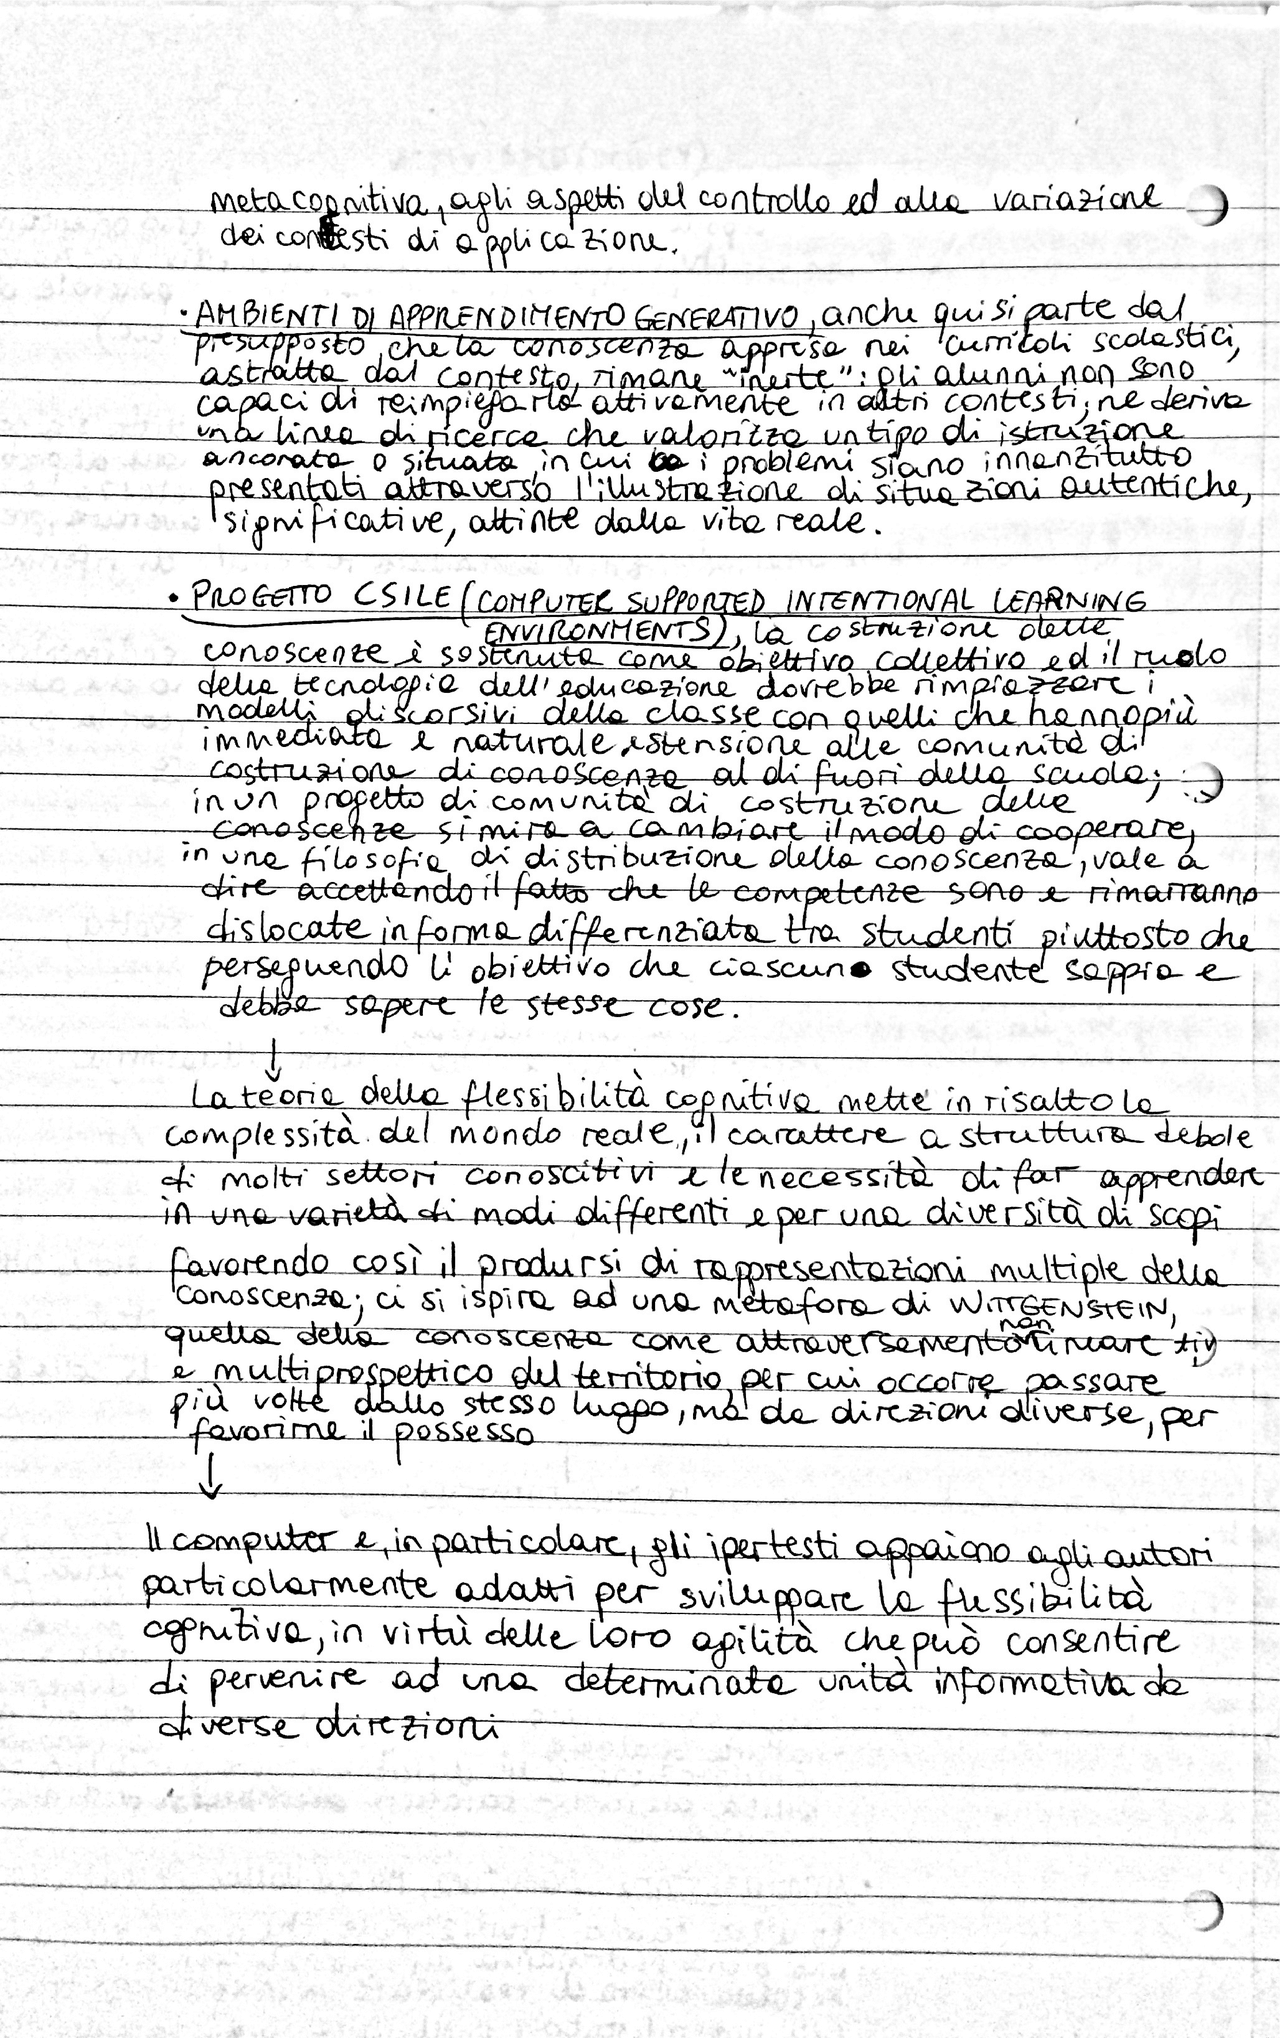 metacognitiva, agli aspetti del controllo ed alla variazione
dei contesti di applicazione.
· AMBIENTI DI APPRENDIMENTO GENERATIVO, anche qui si parte dal
presupposto che la conoscenza appresa nei curricoli scolastici,
astratta dal contesto, rimane "inerte": gli alunni non sono
capaci di reimpiegarla attivamente in altri contesti; ne deriva
una linea di ricerca che valorizza un tipo di istruzione
ancorata o situata in cui i problemi siano innanzitutto
presentati attraverso l'illustrazione di situazioni autentiche,
significative, attinte dalla vita reale.
· PROGETTO CSILE (COMPUTER SUPPORTED INTENTIONAL LEARNING
ENVIRONMENTS), la costruzione delle
conoscenze è sostenuta come obiettivo collettivo ed il ruolo
della tecnologia dell'educazione dovrebbe rimpiazzare i
modelli discorsivi della classe con quelli che hanno più
immediata e naturale estensione alle comunità di
costruzione di conoscenza al di fuori della scuola;
in un progetto di comunità di costruzione delle
conoscenze si mira a cambiare il modo di cooperare,
in una filosofia di distribuzione della conoscenza, vale a
dire accettando il fatto che le competenze sono e rimarranno
dislocate in forma differenziata tra studenti piuttosto che
perseguendo li obiettivo che ciascuno studente sappia e
debba sapere le stesse cose.
↓
La teoria della flessibilità cognitiva mette in risalto la
complessità del mondo reale, il carattere a struttura debole
di molti settori conoscitivi e le necessità di far apprendere
in una varietà di modi differenti e per una diversità di scopi
favorendo così il prodursi di rappresentazioni multiple della
conoscenza; ci si ispira ad una metafora di WITTGENSTEIN,
quella della conoscenza come attraversamento non lineare
e multiprospettico del territorio, per cui occorre passare
più volte dallo stesso luogo, ma da direzioni diverse, per
favorirne il possesso
↓
Il computer e, in particolare, gli ipertesti appaiono agli autori
particolarmente adatti per sviluppare la flessibilità
cognitiva, in virtù delle loro agilità che può consentire
di pervenire ad una determinata unità informativa da
diverse direzioni